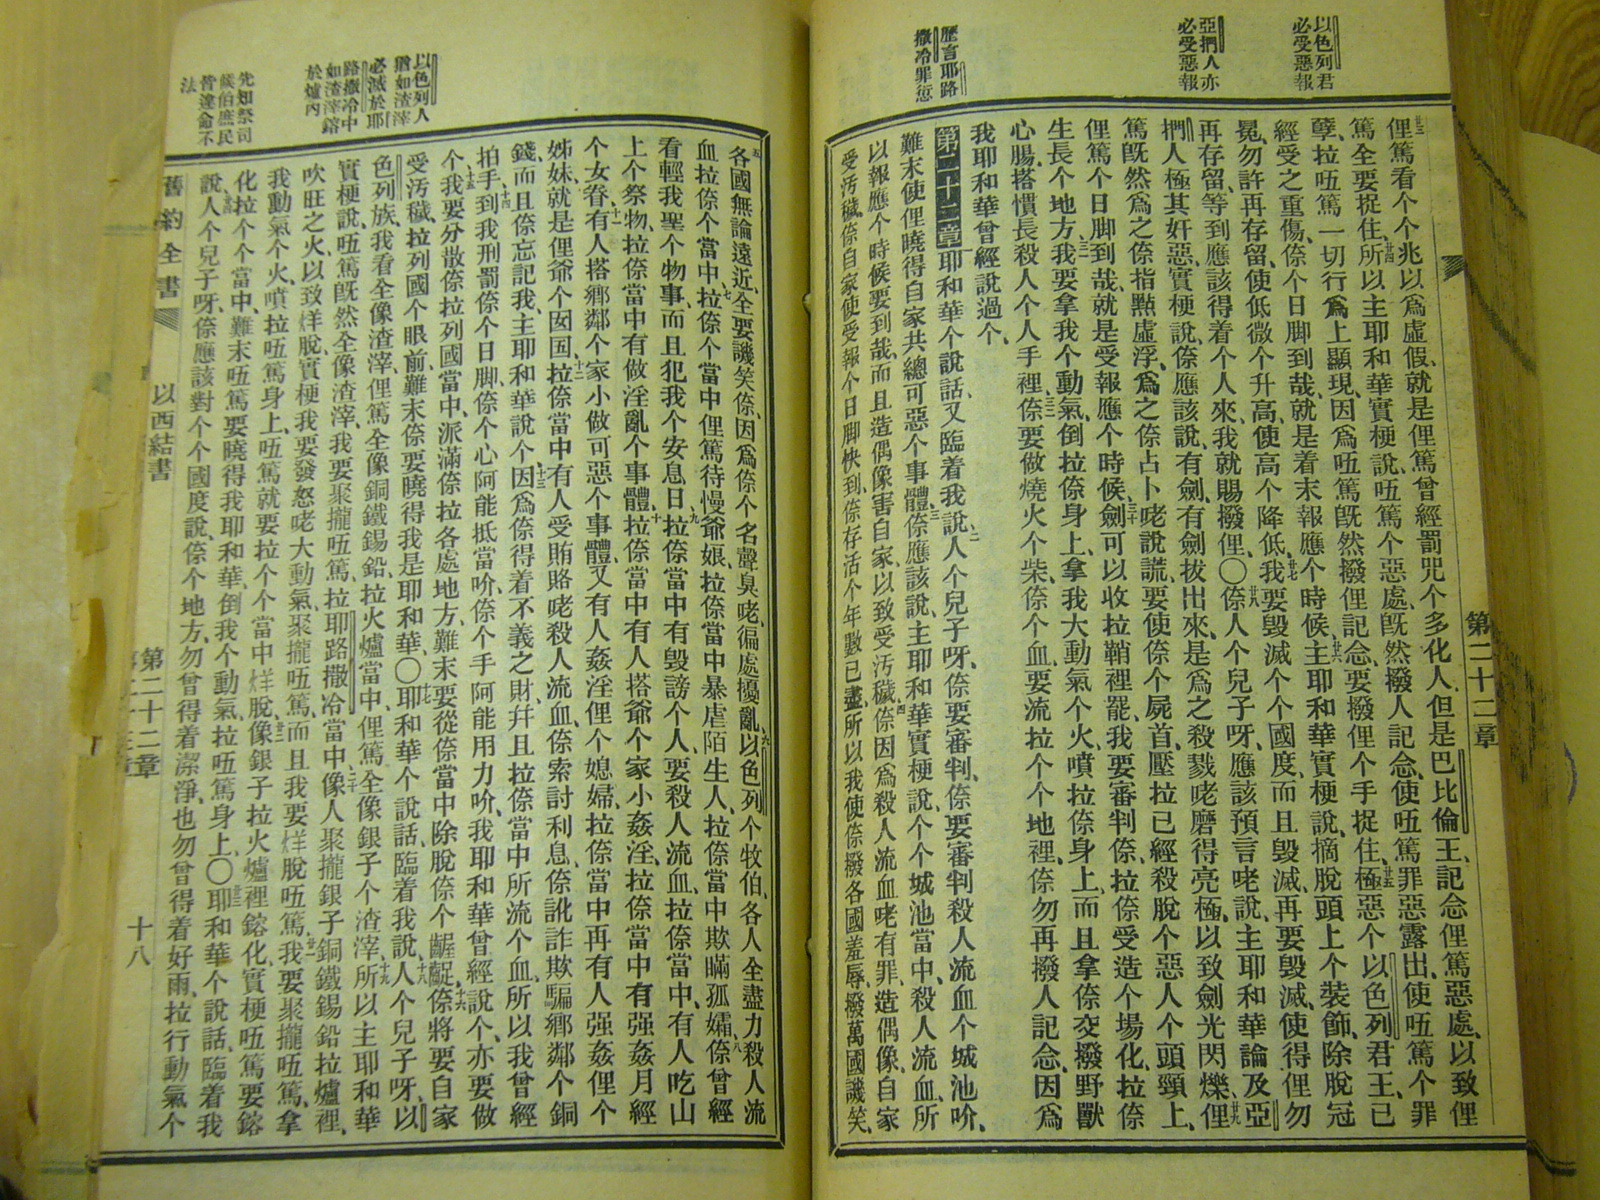 以色列君
必受惡報
亞捫人亦
必受惡報
歷言耶路
撒冷罪愆
第二十二章
俚篤看个个兆以爲虛假、就是俚篤曾經罰咒个多化人但是巴比倫王、記念俚篤惡處、以致俚
篤全要捉住所以主耶和華實梗說、唔篤个惡處、旣然撥人記念、使唔篤罪惡露出、使唔篤个罪
孽、拉唔篤一切行爲上顯現、因爲唔篤旣然撥俚記念、要撥俚个手捉住、極惡个以色列君王、已
經受之重傷、倷个日脚到哉、就是着末報應个時候、主耶和華實梗說、摘脫頭上个裝飾、除脫冠
冕、勿許再存留、使低微个升高、使高个降低、我要毁滅个个國度、而且毁滅、再要毁滅、使得俚勿
再存留、等到應該得着个人來、我就賜撥俚、〇倷人个兒子呀、應該預言咾說、主耶和華論及亞
捫人極其奸惡、實梗說、倷應該說、有劍、有劍拔出來、是爲之殺戮咾磨得亮極、以致劍光閃爍、俚
篤旣然爲之倷指點虛浮、爲之倷占卜咾說謊、要使倷个屍首、壓拉已經殺脫个惡人个頭頸上、
俚篤个日脚到哉、就是受報應个時候、劍可以收拉鞘裡罷、我要審判倷、拉倷受造个場化、拉倷
生長个地方、我要拿我个動氣、倒拉倷身上、拿我大動氣个火、噴拉倷身上、而且拿倷交撥野獸
心腸、搭慣長殺人个人手裡、倷要做燒火个柴、倷个血、要流拉个个地裡、倷勿再撥人記念、因爲
我耶和華曾經說過个、
第二十二章 耶和華个說話、又臨着我說、人个兒子呀、倷要審判、倷要審判殺人流血个城池吤、
難末使俚曉得自家共總可惡个事體、倷應該說、主耶和華實梗說、个个城池當中、殺人流血、所
以報應个時候要到哉、而且造偶像害自家、以致受汚穢、倷因爲殺人流血咾有罪、造偶像、自家
受汚穢、倷自家使受報个日脚快到、倷存活个年數已盡、所以我使倷撥各國羞辱、撥萬國譏笑、
以色列人
猶如渣滓
必滅於耶
路撒冷中
如渣滓鎔
於爐內
先知祭司
侯伯庶民
皆違命不
法
各國無論遠近、全要譏笑倷、因爲倷个名聲臭咾、徧處擾亂、以色列个牧伯、各人全盡力殺人流
血、拉倷个當中、拉倷个當中、俚篤待慢爺娘、拉倷當中、暴虐陌生人、拉倷當中、欺瞞孤孀、倷曾經
看輕我聖个物事、而且犯我个安息日、拉倷當中、有毁謗个人、要殺人流血、拉倷當中、有人吃山
上个祭物、拉倷當中、有做淫亂个事體、拉倷當中、有人搭爺个家小姦淫、拉倷當中、有强姦月經
个女眷、有人搭鄉鄰个家小做可惡个事體、又有人姦淫俚个媳婦、拉倷當中、再有人强姦俚个
姊妹、就是俚爺个囡囝、拉倷當中、有人受賄賂咾殺人流血、倷索討利息、倷訛詐欺騙鄉鄰个銅
錢、而且倷忘記我、主耶和華說个、因爲倷得着不義之財、幷且拉倷當中所流个血、所以我曾經
拍手、到我刑罰倷个日脚、倷个心阿能抵當吤、倷个手阿能用力吤、我耶和華曾經說个、亦要做
个、我要分散倷拉列國當中、派滿倷拉各處地方、難末要從倷當中除脫倷个齷齪、倷將要自家
受汚穢、拉列國个眼前、難末倷要曉得我是耶和華、〇耶和華个說話、臨着我說、人个兒子呀、以
色列族、我看全像渣滓、俚篤全像銅鐵錫鉛、拉火爐當中、俚篤全像銀子个渣滓、所以主耶和華
實梗說、唔篤旣然全像渣滓、我要聚攏唔篤、拉耶路撒冷當中、像人聚攏銀子銅鐵錫鉛拉爐裡、
吹旺之火、以致烊脫、實梗我要發怒咾大動氣、聚攏唔篤、而且我要烊脫唔篤、我要聚攏唔篤、拿
我動氣个火、噴拉唔篤身上、唔篤就要拉个个當中烊脫、像銀子拉火爐裡鎔化、實梗唔篤要鎔
化拉个个當中、難末唔篤要曉得我耶和華、倒我个動氣拉唔篤身上、〇耶和華个說話、臨着我
說、人个兒子呀、倷應該對个个國度說、倷个地方、勿曾得着潔淨、也勿曾得着好雨、拉行動氣个
舊約全書
以西結書
第二十二章
十八